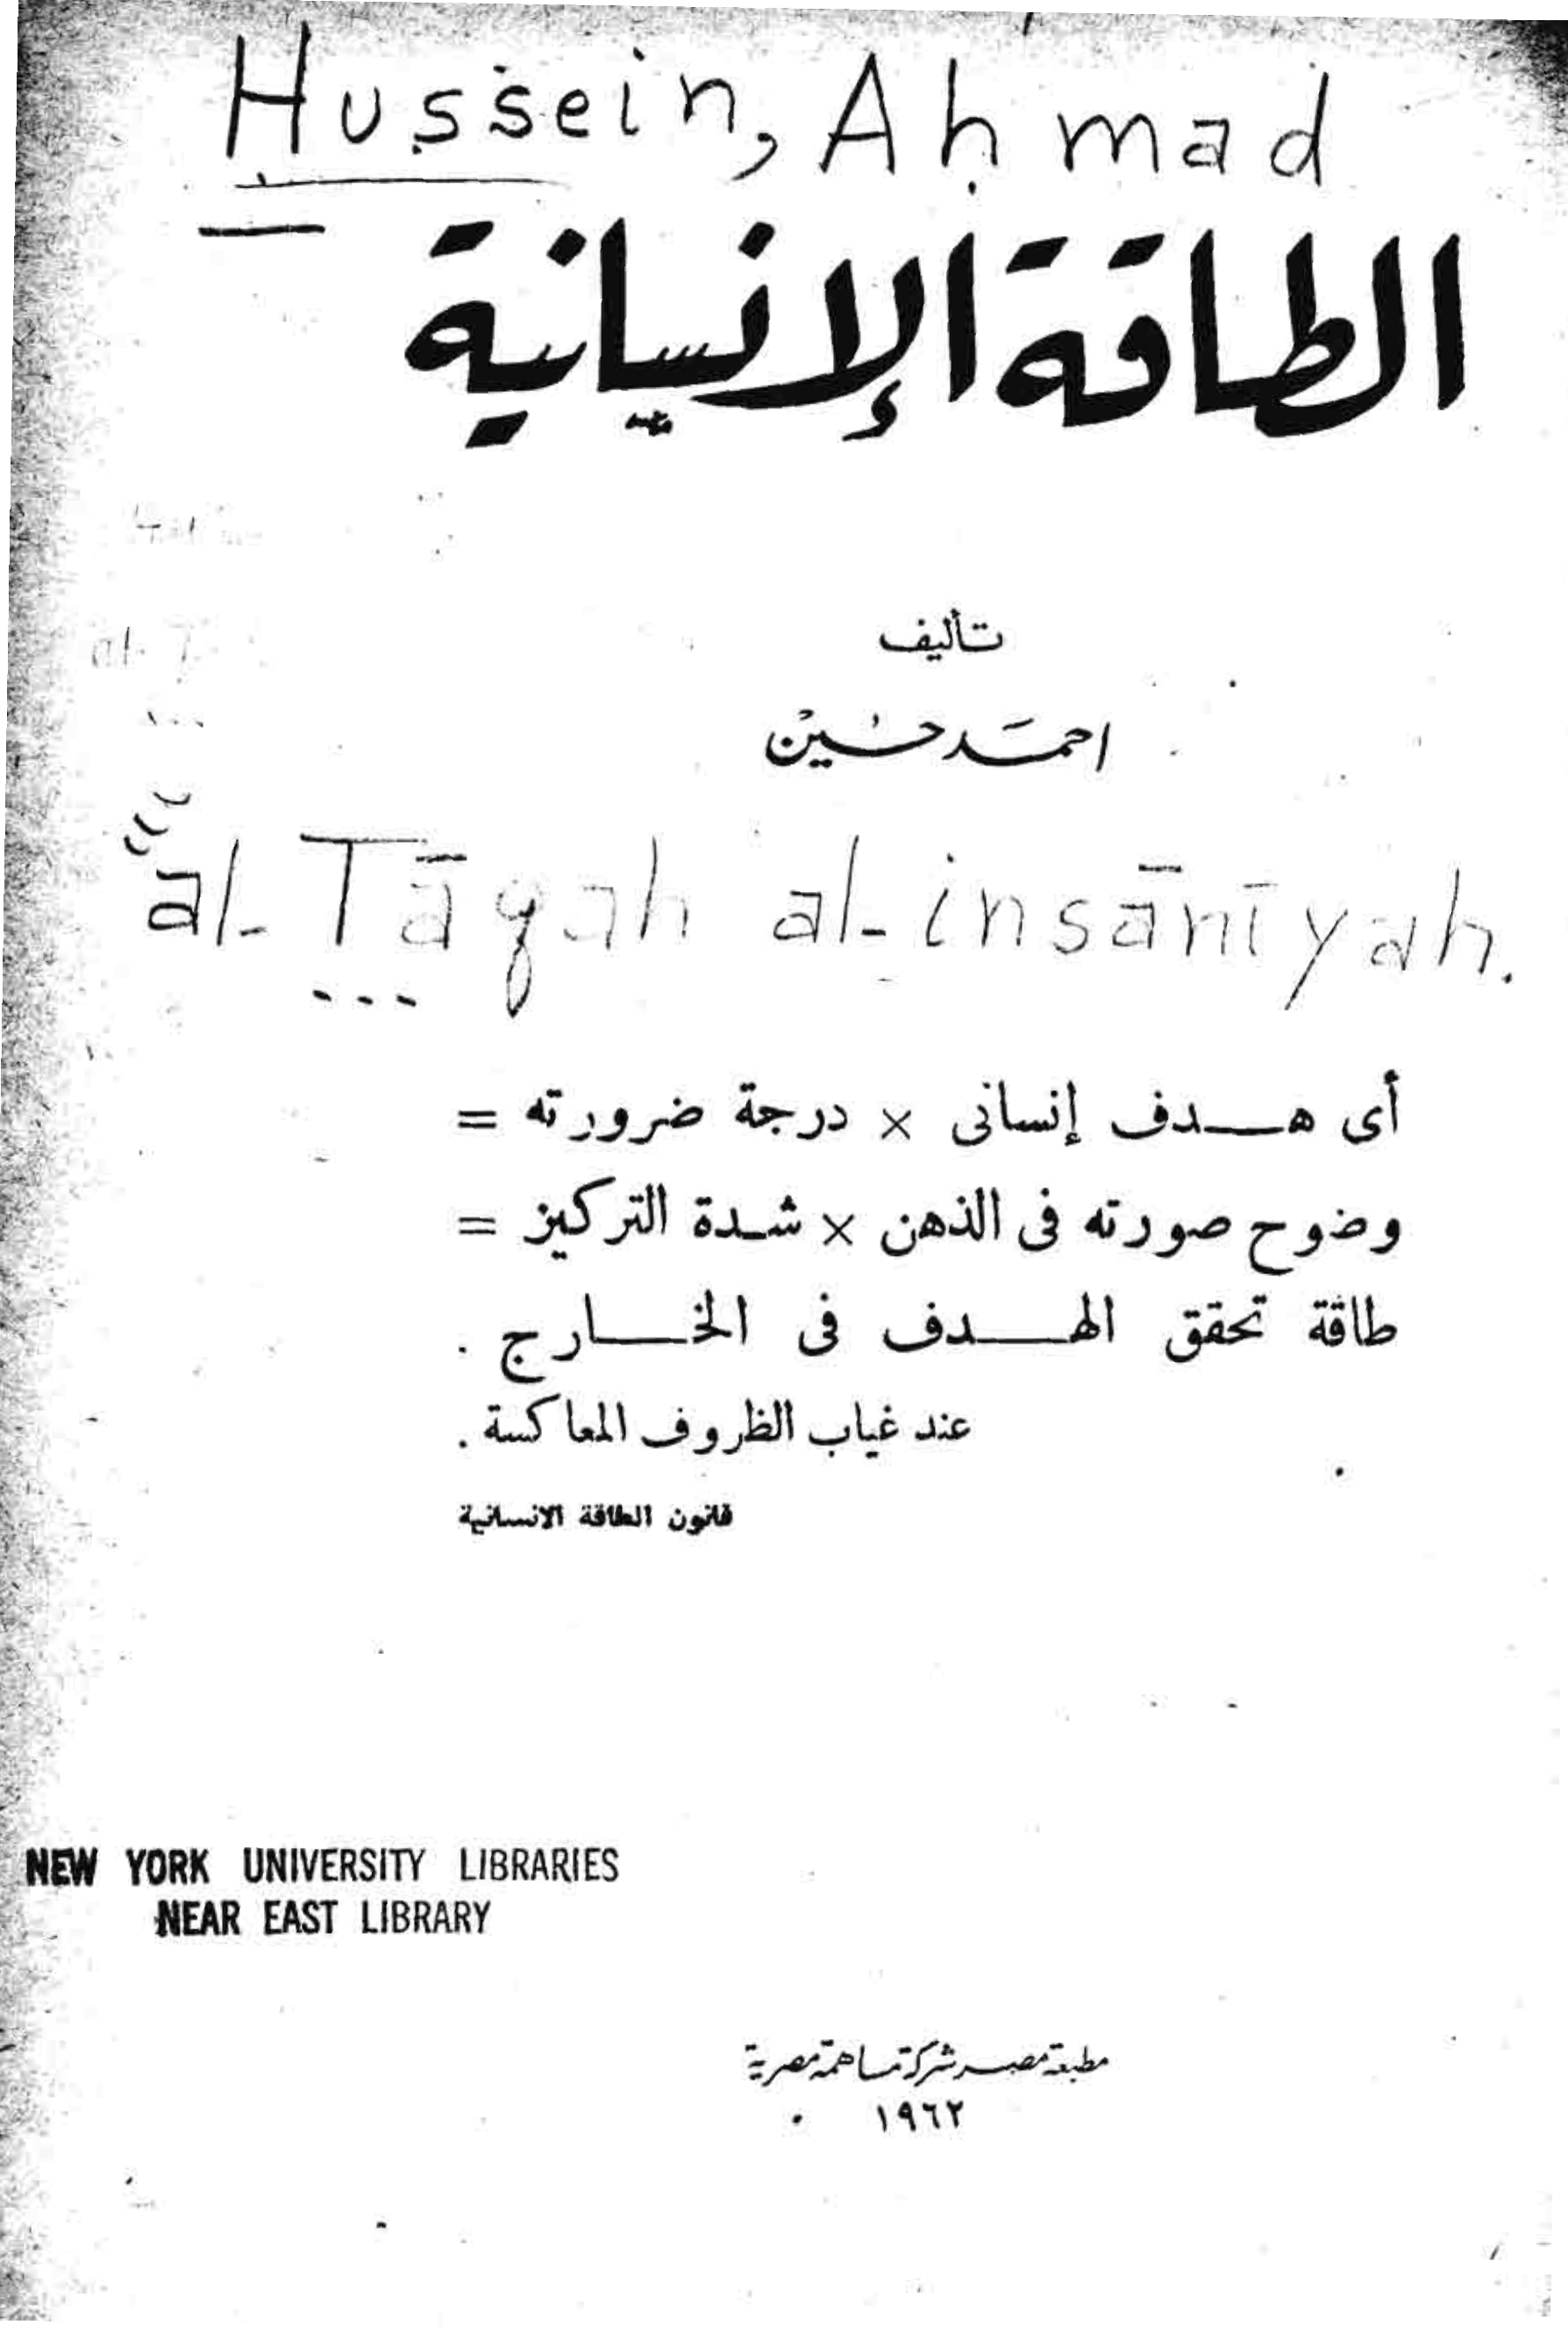 Hussein, Aḥmad
الطاقة الإنسانية
تأليف
احمد حسين
al-Tāqah al-insānīyah.
أى هدف إنسانى × درجة ضرورته =
وضوح صورته فى الذهن × شدة التركيز =
طاقة تحقق الهدف فى الخارج .
عند غياب الظروف المعاكسة .
قانون الطاقة الانسانية
NEW YORK UNIVERSITY LIBRARIES
NEAR EAST LIBRARY
مطبعة مصر شركة مساهمة مصرية
١٩٦٢